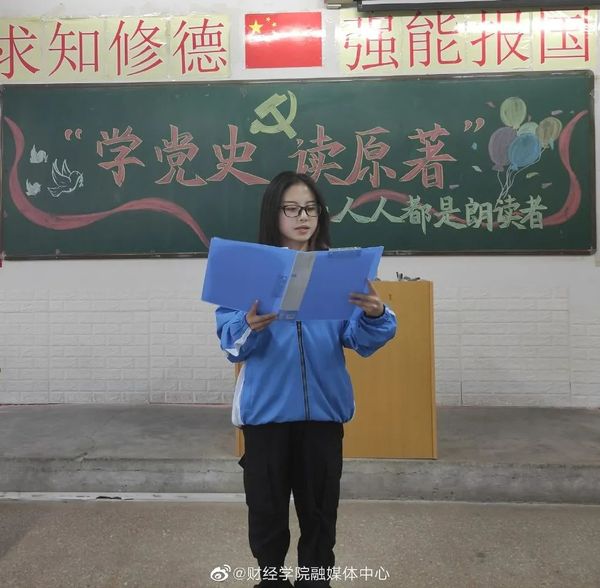 求知修德 强能报国
“学党史 读原著”
人人都是朗读者
@财经学院融媒体中心